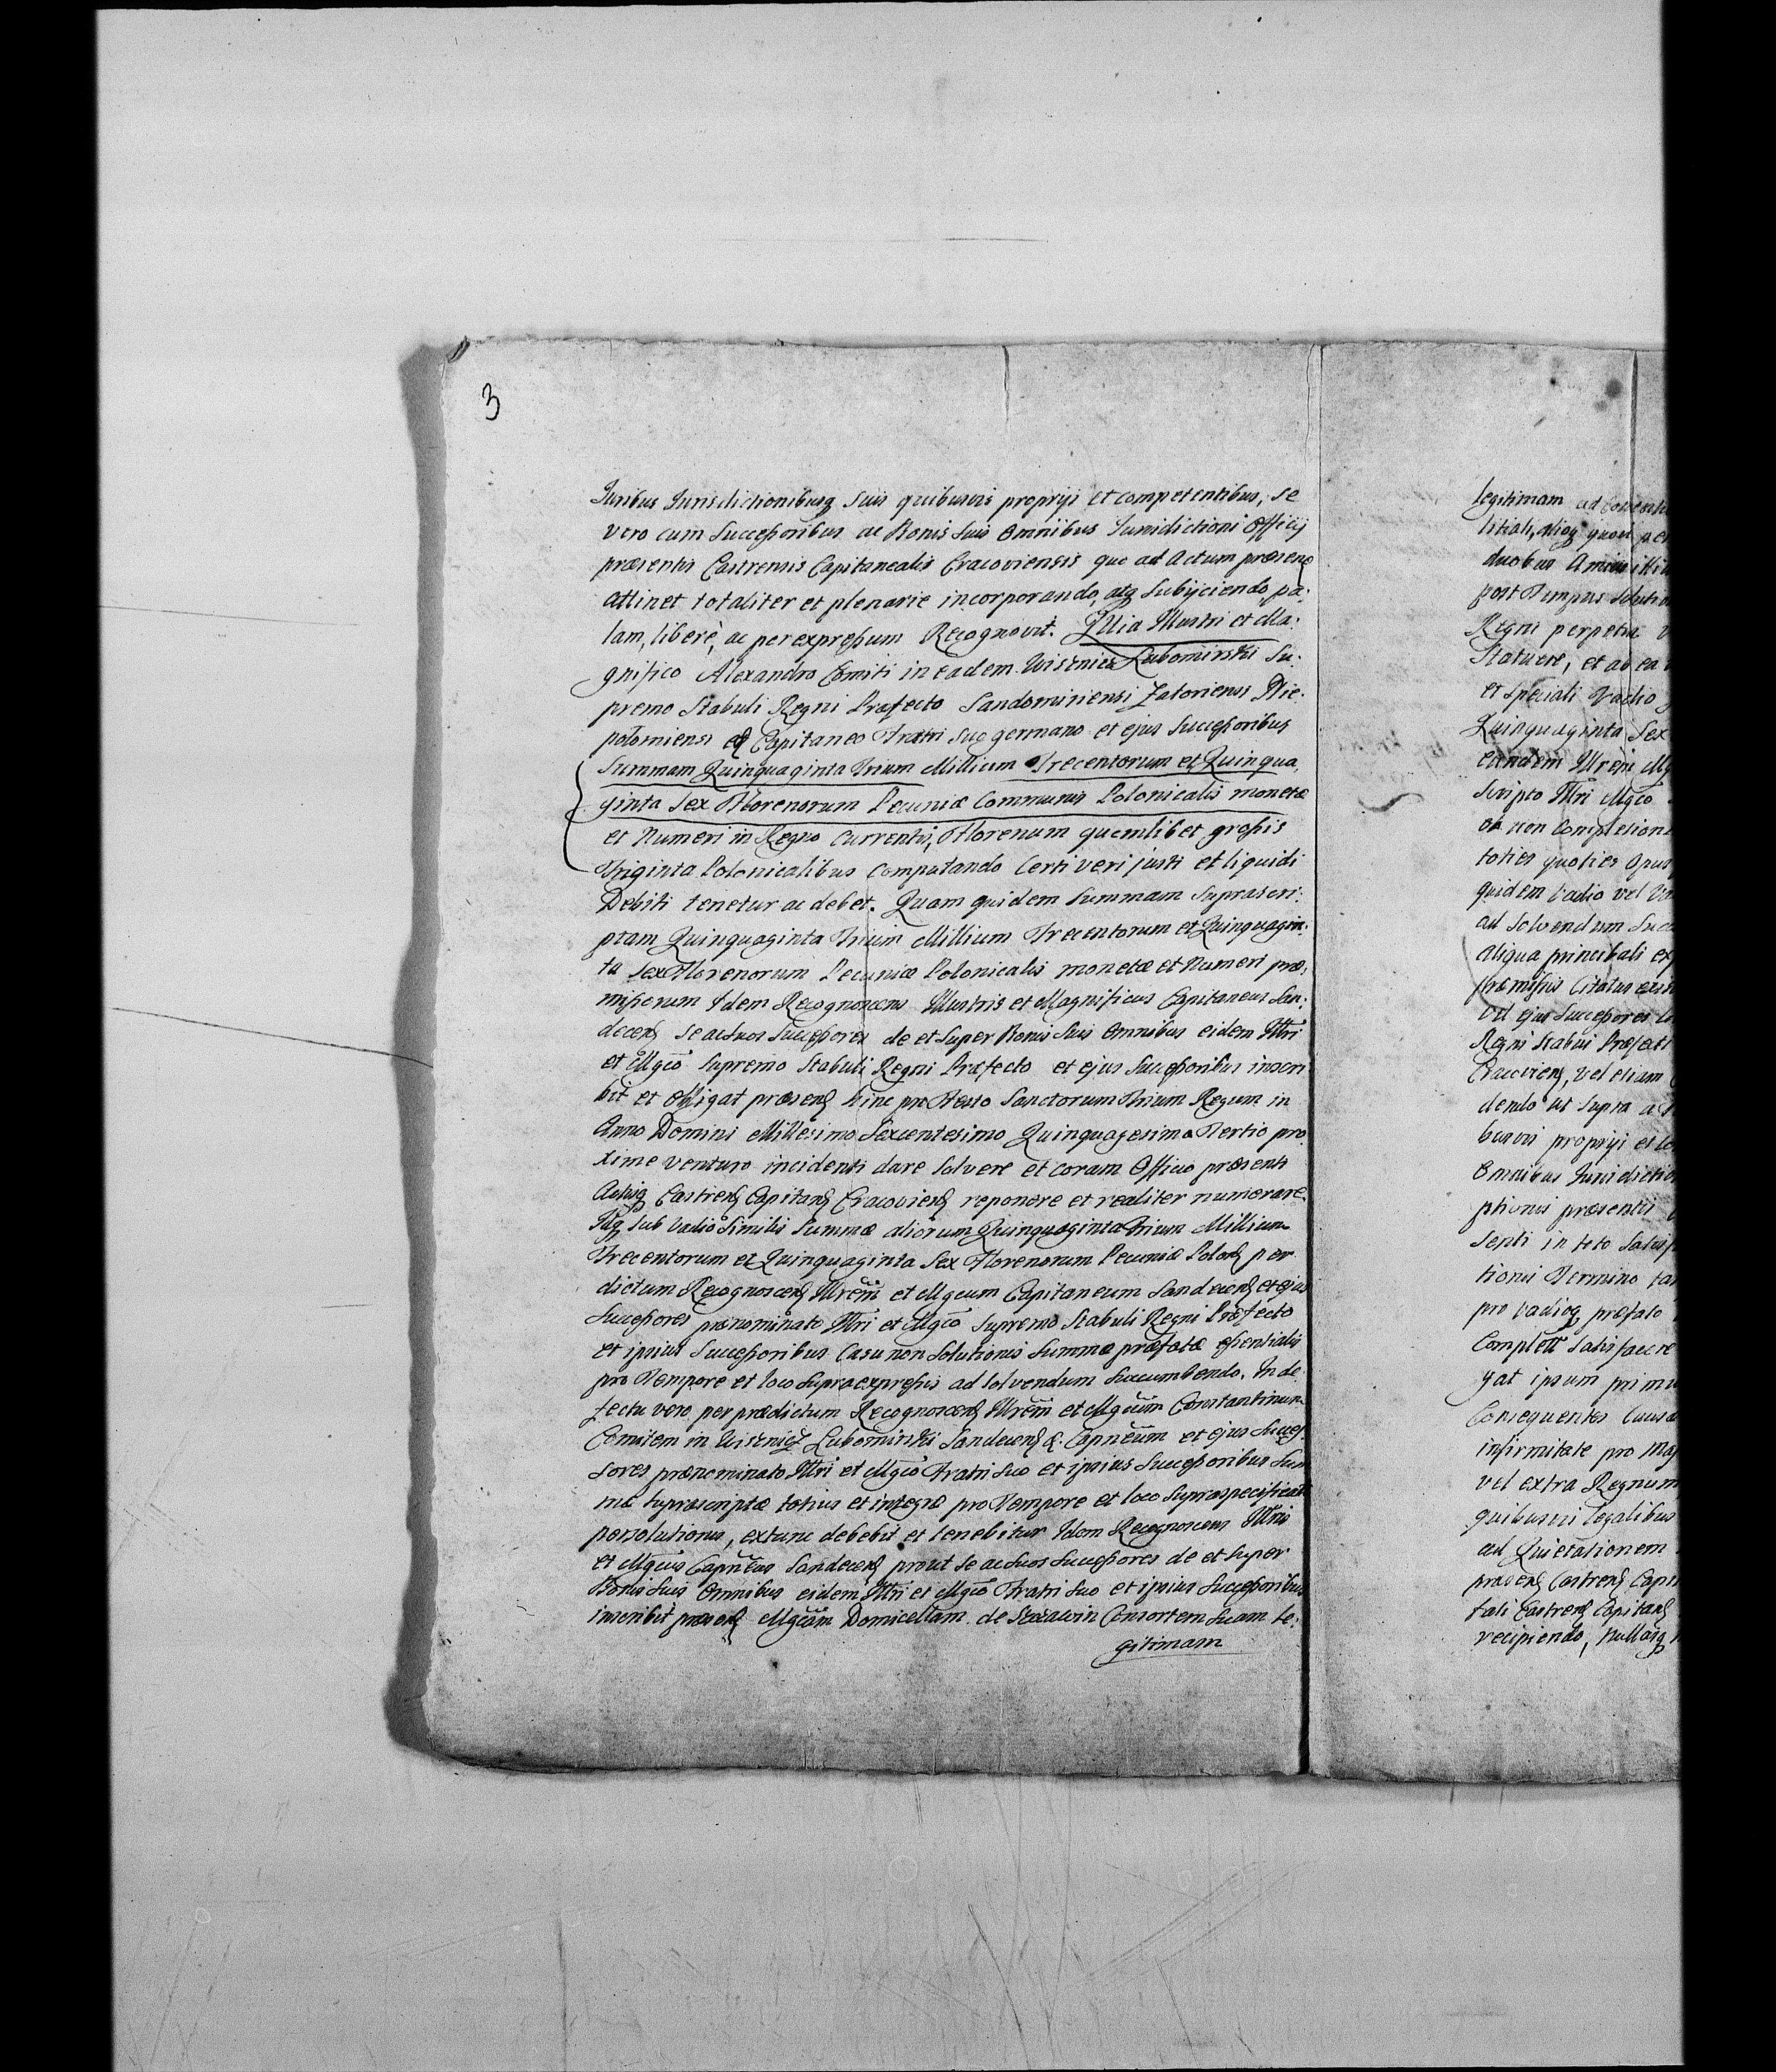 3
Juribus Jurisdictionibusq suis quibusvis proprijs et competentibus, se
vero cum Successoribus ac Bonis suis Omnibus Jurisdictioni Officij
præsentis Castrensis Capitanealis Cracoviensis quo ad Actum præsens
attinet totaliter et plenarie incorporando, atq subijciendo pa:
lam, liberè, ac per expressum Recognovit. Quia Illustri et Ma:
gnifico Alexandro Comiti in eadem Wisnicz Lubomirski Su:
premo Stabuli Regni Præfecto Sandomiriensi Zatoriensi Nie:
polomiensi Capitaneo Fratri suo germano et ejus Successoribus
Summam Quinquaginta Trium Millium Trecentorum et Quinqua
ginta Sex Florenorum Pecuniæ Communis Polonicalis monetæ
et Numeri in Regno Currentis, Florenum quemlibet grossis
Triginta Polonicalibus Computando Certi veri justi et liquidi
Debiti tenetur ac debet. Quam quidem Summam Suprascri:
ptam Quinquaginta Trium Millium Trecentorum et Quinquagin:
ta Sex Florenorum Pecuniæ Polonicalis monetæ et Numeri præ:
missorum Idem Recognoscens Illustris et Magnificus Capitaneus San:
decens se ac suos Successores de et super Bonis suis Omnibus eidem Illri
et Mgco Supremo Stabuli Regni Præfecto et ejus Successoribus inscri
bit et obligat præsens hinc pro Festo Sanctorum Trium Regum in
Anno Domini Millesimo Sexcentesimo Quinquagesimo Tertio pro
xime venturo incidenti dare solvere et coram Officio præsenti
Actisq Castrens Capitans Cracoviens reponere et realiter numerare.
Idq sub vadio similis Summæ aliorum Quinquaginta Trium Millium
Trecentorum et Quinquaginta Sex Florenorum Pecuniæ Polons per
dictum Recognoscens Illrem et Mgcum Capitaneum Sandecens et ejus
Successores prænominato Illri et Mgco Supremo Stabuli Regni Præfecto
et ipsius Successoribus Casu non Solutionis Summæ præfatæ essentialis
pro Tempore et loco supraexpressis ad solvendum succumbendo. In de
fectu vero per prædictum Recognoscens Illrem et Mgcum Constantinum
Comitem in Wisnicz Lubomirski Sandecens & Capneum et ejus Succes
sores prænominato Illri et Mgco Fratri suo et ipsius Successoribus Sum
mæ suprascriptæ totius et integræ pro Tempore et loco supraspecificatis
persolutionis, extunc debebit et tenebitur Idem Recognoscens Illris
et Mgcus Capneus Sandecens prout se ac suos Successores de et super
Bonis suis Omnibus eidem Illri et Mgco Fratri suo et ipsius Successoribus
inscribit præsens Mgcam Domicellam de Consortem suam le:
gitimam
legitimam ad
duobus
post Tempus
Regni perpetua
Statuere, et ab ea
et speciali Vadio
Quinquaginta Sex
Eundem Illrem
Scripto Illri Mgco
non Completion
toties quoties Opus
quidem vadio vel
ad solvendum
aliqua principali
præmissis Citatus
vel ejus Successores
Regni Stabuli Præfecti
Cracoviens, vel etiam
dendo ut supra
busvis proprijs et
Omnibus Jurisdictio
ptionis præsentis
senti in toto
tionis Termino
pro vadioq præfato
satisfacere
gat ipsum
Consequentes
infirmitate pro
vel extra Regnum
quibusvis legalibus
ad Quietationem
præsens Castrens
tali Castrens Capitans
recipiendo,